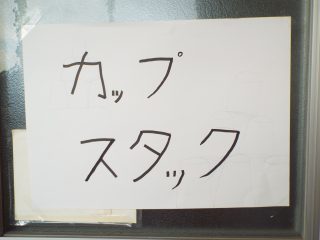 カップ
スタック